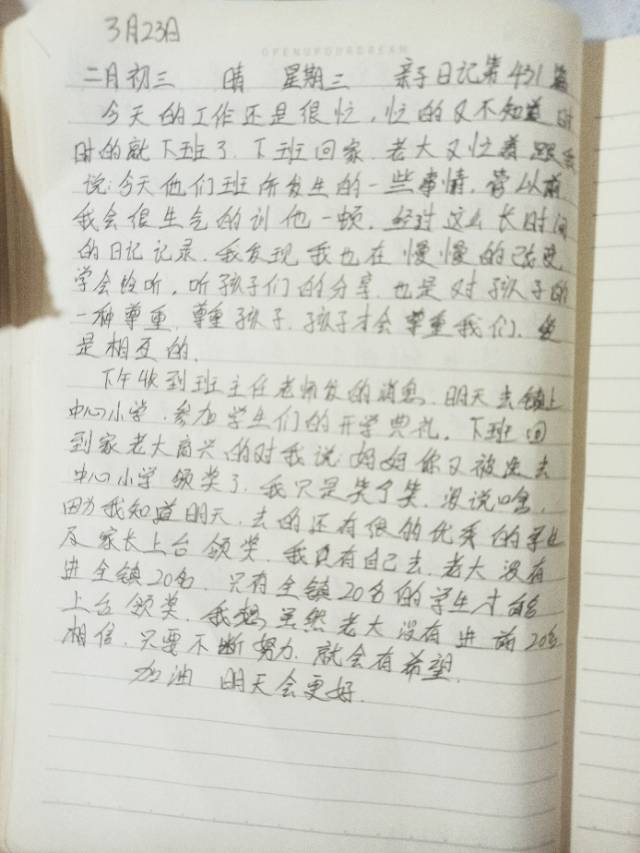 3月23日
OPENUPOURDREAM
二月初三 晴 星期三 亲子日记第431篇
今天的工作还是很忙,忙的又不知道时
时的就下班了.下班回家.老大又忙着跟我
说:今天他们班所发生的一些事情,
我会很生气的训他一顿.经过这么长时间
的日记记录.我发现我也在慢慢的改变.
学会聆听,听孩子们的分享.也是对孩子的
一种尊重.尊重孩子.孩子才会尊重我们.
是相互的.
下午收到班主任老师发的消息.明天去镇上
中心小学.参加学生们的开学典礼.下班回
到家老大高兴的对我说:妈妈你又被选去
中心小学领奖了.我只是笑了笑.没说啥.
因为我知道明天.去的还有很的优秀的学生
及家长上台领奖.我只有自己去.老大没有
进全镇20名.只有全镇20名的学生才
上台领奖.我想虽然老大没有进前20名
相信.只要不断努力.就会有希望.
加油 明天会更好.